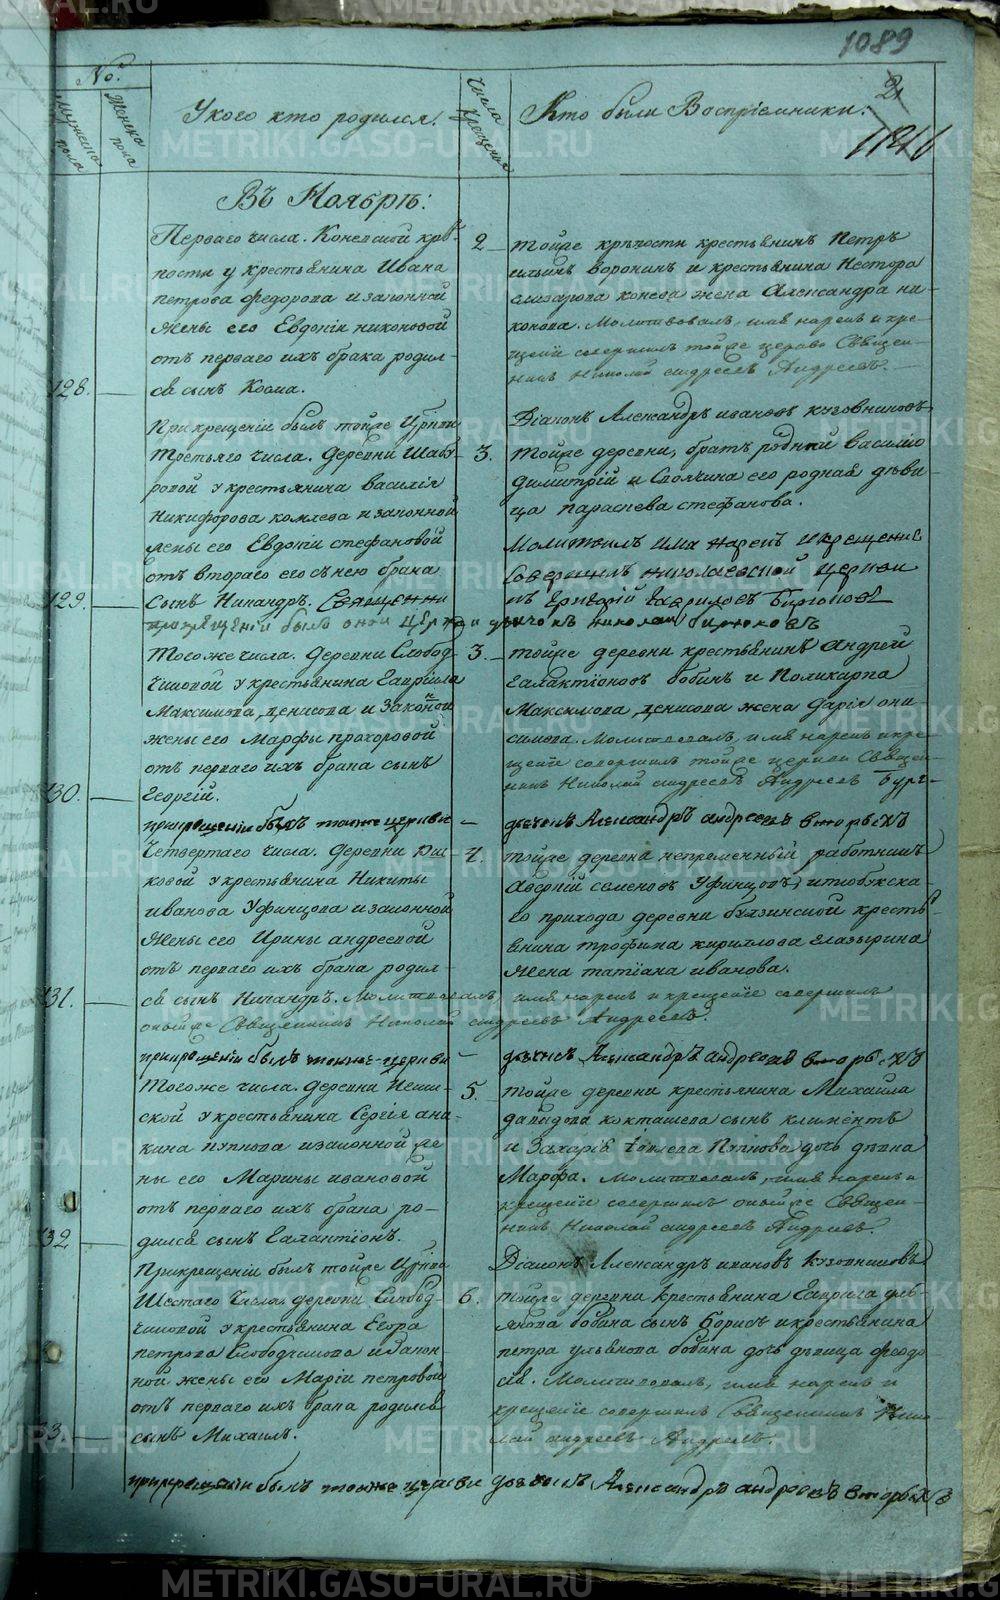 1089
№:
Мужеска пола
Женска пола
У кого кто родился.
Числа крещения
Кто были Восприемники.
2
Въ Ноябрѣ:
Перваго числа. Коневской крѣ-
пости у крестьянина Ивана
Петрова Федорова и законной
жены его Евдокіи Никоновой
отъ перваго ихъ брака родил-
128.
ся сынъ Косма.
2
тойже крѣпости крестьянинъ Петръ
Ильинъ Воронинъ и крестьянина Нестора
Елизарова Конева жена Александра Ни-
конова. Молитвовалъ, имя нарекъ и кре-
щеніе совершилъ тойже церкви Священ-
никъ Николай Андреевъ Андреевъ.
При крещеніи былъ тойже Церкви
Діаконъ Александръ Ивановъ Кузовниковъ
Третьяго числа. Деревни Шабу-
ровой у крестьянина Василія
Никифорова Комлева и законной
жены его Евдокіи Стефановой
отъ втораго его съ нею брака
129.
Сынъ Никандръ.
3.
тойже деревни, братъ родной Василію
Димитрій и Своячина его родная дѣви-
ца Параскева Стефанова.
Молитвилъ имя нарекъ и крещение
Совершилъ Николаевской церкви
Гаврилов Бирюков
при крещеніи былъ оной церкви дьячокъ Николай Бирюковъ
Тогоже числа. Деревни Слобод-
чиковой у крестьянина Гавриила
Максимова Денисова и законной
жены его Марфы Прохоровой
отъ перваго ихъ брака сынъ
130.
Георгій.
3.
тойже деревни крестьянинъ Андрей
Галактіоновъ Бобинъ и Поликарпа
Максимова Денисова жена Дарія Они-
симова. Молитвовалъ, имя нарекъ и кре-
щеніе совершилъ тойже церкви Священ-
никъ Николай Андреевъ Андреевъ
при крещеніи былъ тоже церкви
дьячекъ Александръ Андреевъ
Четвертаго числа. Деревни
ковой у крестьянина Никиты
Иванова Уфинцова и законной
жены его Ирины Андреевой
отъ перваго ихъ брака родил-
131.
ся сынъ Никандръ. Молитвовалъ, имя нарекъ и крещеніе совершилъ
оныйже Священникъ Николай Андреевъ Андреевъ.
4.
тойже деревни непременный работникъ
Аверкій Семеновъ Уфинцовъ и Тюбукска-
го прихода деревни крестья-
нина Трофима Кириллова Глазырина
жена Татіана Иванова.
при крещеніи былъ тоже церкви
дьячекъ Александръ Андреевъ
Тогоже числа. Деревни
ской у крестьянина Сергія Ана-
ньина Пупкова и законной же-
ны его Марины Ивановой
отъ перваго ихъ брака ро-
132
дился сынъ Галактіонъ.
5.
тойже деревни крестьянина Михаила
Давидова Кокташева сынъ Климентъ
и Захарія Пупкова дочь дѣвка
Марфа. Молитвовалъ, имя нарекъ и
крещеніе совершилъ оныйже Священ-
никъ Николай Андреевъ Андреевъ.
При крещеніи былъ тойже Церкви
Діаконъ Александръ Ивановъ Кузовниковъ
Шестаго числа. деревни Слобод-
чиковой у крестьянина Егора
Петрова Слободчикова и закон-
ной жены его Маріи Петровой
отъ перваго ихъ брака родился
сынъ Михаилъ.
6.
тойже деревни крестьянина Гаврила Уль-
янова Бобина сынъ Борисъ и крестьянина
Петра Ульянова Бобина дочь дѣвица Феодо-
сія. Молитвовалъ, имя нарекъ и
крещеніе совершилъ Священникъ Нико-
лай Андреевъ Андреевъ.
при крещеніи былъ тоже церкви дьячекъ Александръ Андреевъ
METRIKI.GASO-URAL.RU